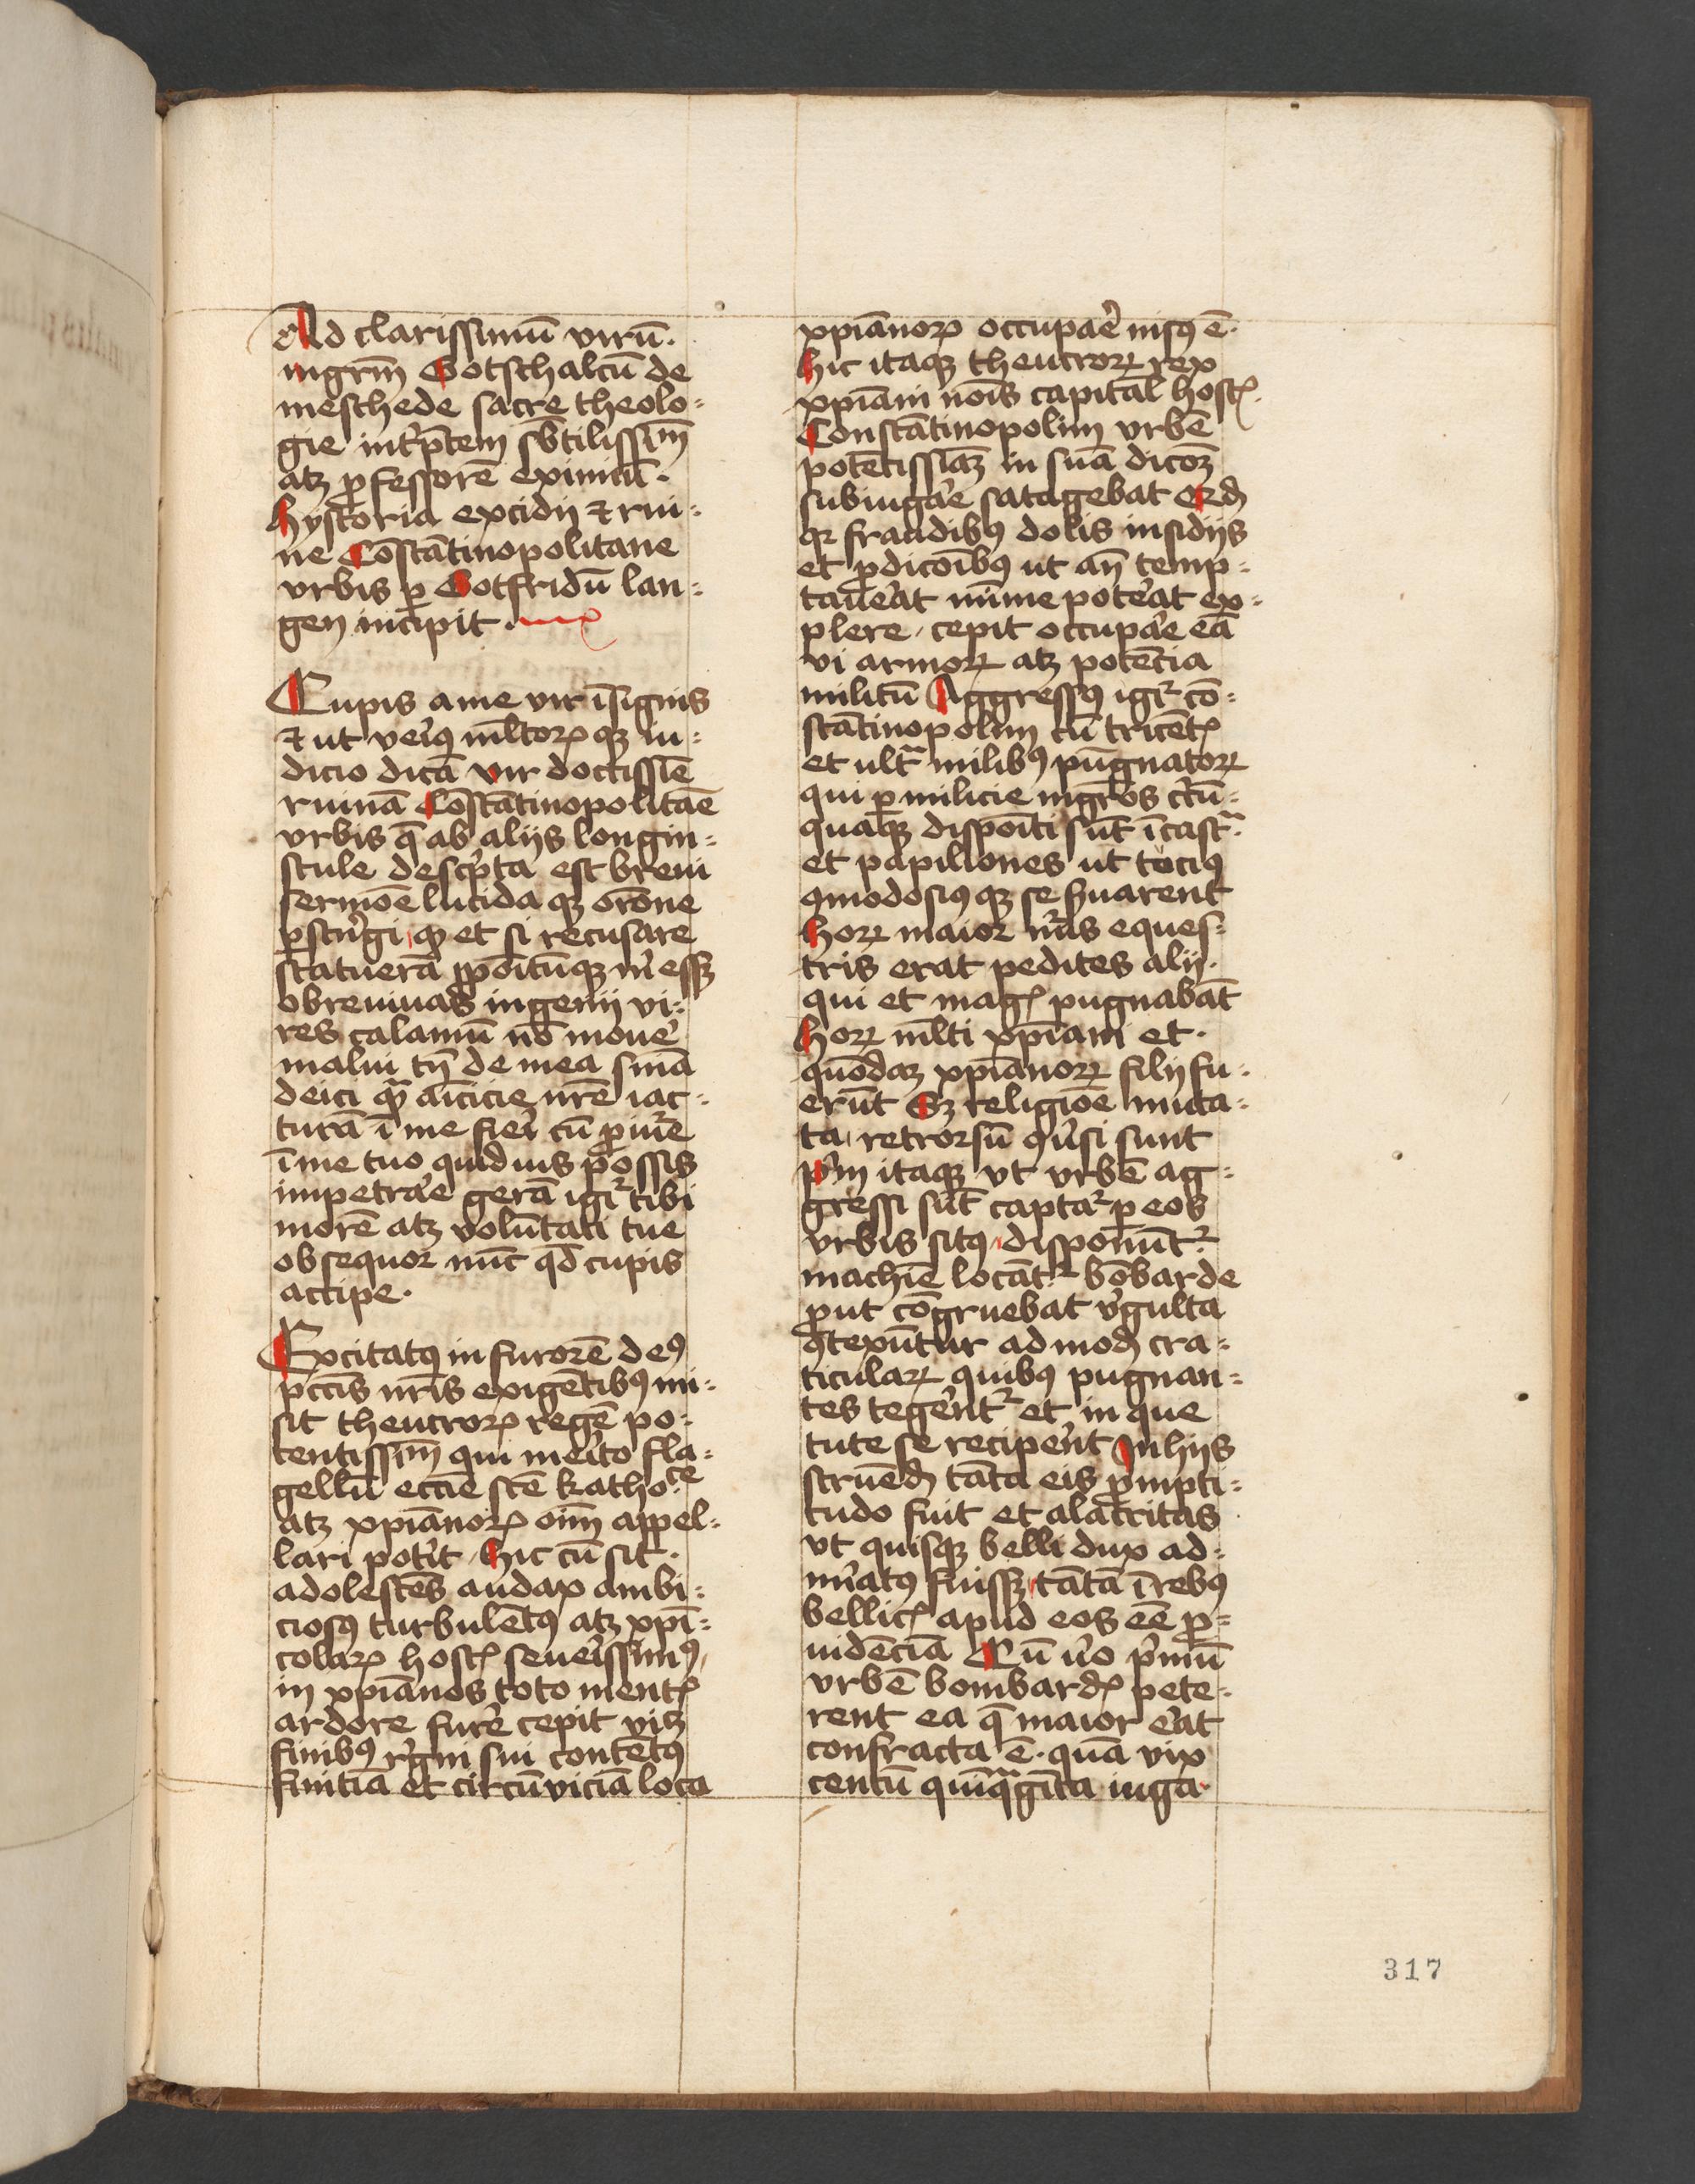 Ad clarissimū virū.
mgr̄m Gotschalcū de
meschede sacre theolo-
gie int'p̄tem sb̄tilissim̄
atqꝫ ꝓfessorē eximiū.
hystoria excidij ⁊ rui-
ne Cōstātinopolitane
vrbis ꝑ Gotfridū lan-
gen incipit.
Cupis a me vir īsignis
⁊ ut veri9 ml̄torꝝ qꝫ iu-
dicio dicā vir doctissīe
ruinā Cōstātinopolitāe
vrbis q̄ ab alijs longiu-
scule desc'pta est breui
sermōe lucida qꝫ orōne
ꝑstr'gi qꝫ et si recusare
statuerā ꝓpoitūqꝫ m' essꝫ
ob breuitatē ingenij vi-
res calamū nō mouē
malui tn̄ de mea sn̄ia
deici qͣ am̄icicie nr̄e iac-
turā ī me fieri cū ꝑ iur̄e
ī me tuo quiduis possis
impetrar̄e gerā igr̄ tibi
morē atqꝫ volūtati tue
obsequor nūc qd̄ cupis
accipe.
Excitat9 in furorē de9
pccīs nr̄is exigētib9 mi-
sit theucrorꝝ regē po-
tentissim̄ qui merito fla-
gellū eccīe scē katho:ce
atqꝫ xpīanorꝝ oīm appel-
lari potit hic cū sit.
adolescēs audax ambi-
cios9 turbulēt9 atqꝫ xpī-
colarꝝ hostꝭ seuerissim9
in xpīanos toto mentꝭ
ardore furēr cepit vixqꝫ
finib9 r'gni sui contēt9
finitīa et circūuicīa loca
xpīanorꝝ occupar̄e nis9 ē.
hic itaqꝫ theucrorꝝ rex
xpīani noīs capital̄ hostꝭ
Constātinopolim vrbē
potētissīaꝫ in suā dicōꝫ
subiugar̄e satagebat Qd̄
qꝛ fraudib9 dolis insidijs
et ꝓdicōib9 ut an̄ temp-
tauerat mīme poterat ex-
plere, cepit occupar̄e eā
vi armorꝝ atqꝫ potētia
militū Aggress9 igr̄ cō-
stātinopolim cū tricētꝭ
et ultͣ milib9 pugnatorꝝ
qui ꝑ milicie mgr̄os c'tū-
quaqꝫ dispoīti sūt ī castͣ.
et papiliones ut toci9
9modosi9 qꝫ se s'uarent
horꝝ maior nr̄us eques-
tris erat pedites alij.
qui et magꝭ pugnabāt
horꝝ ml̄ti xpīani et.
quōdaꝫ xpīanorꝝ filij fu-
erūt Sꝫ religiōe muta-
ta retrorsū 9u'si sunt
p'm itaqꝫ vt vrbē ag-
gressi sūt captar̄ ꝑ eos
vrbis sit9 disponūtꝛ
machīe locātꝛ bōbarde
ꝓut cōgruebat v'gulta
9texūntur ad mod̄ cra-
ticularꝝ quib9 pugnan-
tes tegerētꝛ et in que
tute se reciperēt In hijs
struēd̄ tāta eis ꝓmpti-
tudo fuit et alacritas
vt quisqꝫ belli dux ad-
mirat9 fuissꝫ tātā ī reb9
bellicꝭ apud eos eē ꝓ-
uidēciā Cū v'o p'mū
vrbē bombard̄ꝭ pete-
rent ea q̄ maior erat
confracta ē. quā vix
centū quīqͣgīta iuga
317